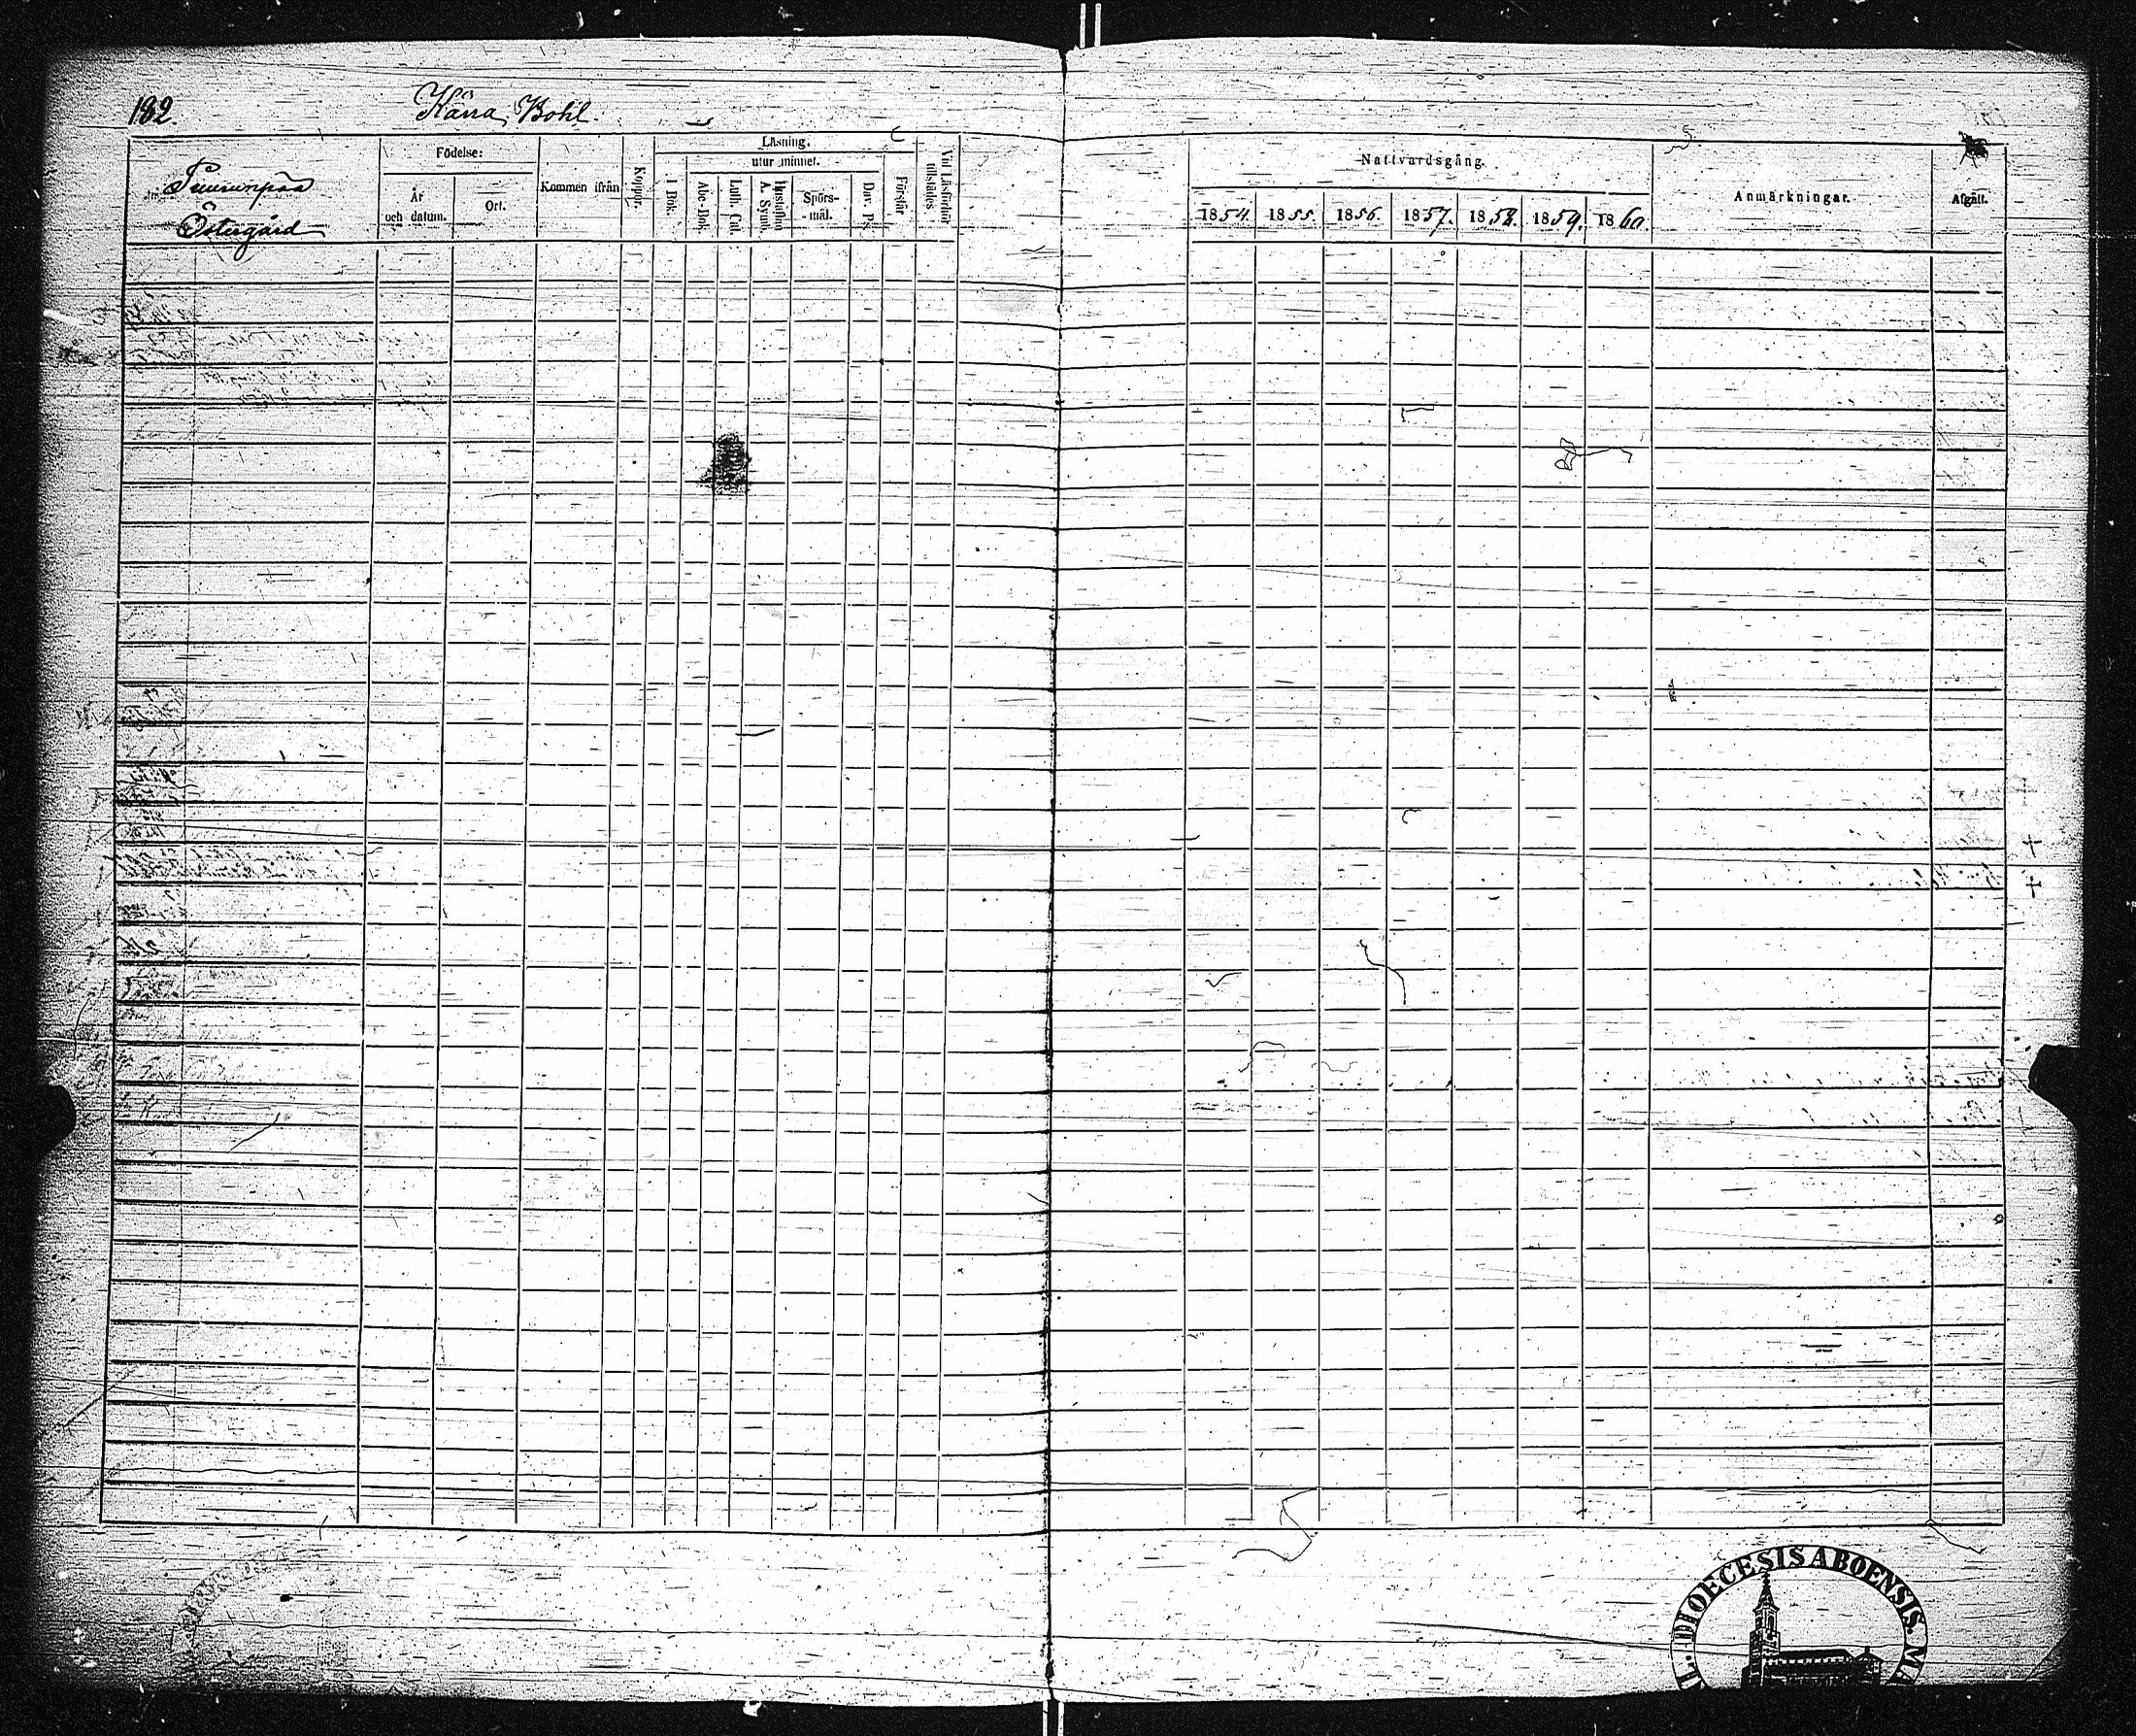 182.
Kärra Bohl.
Puurunpää
Östergård
Födelse:
År och datum.
Ort.
Kommen ifrån
Koppor.
Läsning.
utur minnet.
I Bok.
Abc-Bok
Luth. Cat.
Hustaflan A. Symb.
Spörs-mål.
Dav. Ps.
Förstår
Vid Läsförhör tillstädes
Nattvardsgång.
1854. 1855. 1856. 1857. 1858. 1859. 1860.
Anmärkningar.
Afgått.
DIOECESIS ABOENSIS.